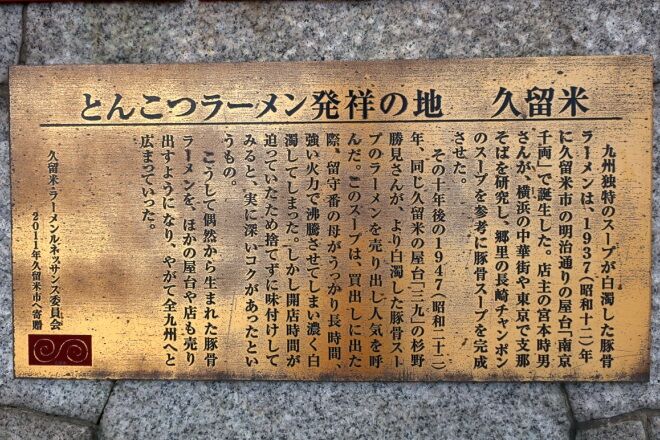 とんこつラーメン発祥の地　久留米
　九州独特のスープが白濁した豚骨
ラーメンは、1937（昭和十二）年
に久留米市の明治通りの屋台「南京
千両」で誕生した。店主の宮本時男
さんが、横浜の中華街や東京で支那
そばを研究し、郷里の長崎チャンポン
のスープを参考に豚骨スープを完成
させた。
　その十年後の1947（昭和二十二）
年、同じ久留米の屋台「三九」の杉野
勝見さんが、より白濁した豚骨スー
プのラーメンを売り出し人気を呼
んだ。このスープは、買出しに出た
際、留守番の母がうっかり長時間、
強い火力で沸騰させてしまい濃く白
濁してしまった。しかし開店時間が
迫っていたため捨てずに味付けして
みると、実に深いコクがあったとい
うもの。
　こうして偶然から生まれた豚骨
ラーメンを、ほかの屋台や店も売り
出すようになり、やがて全九州へと
広まっていった。
久留米・ラーメンルネッサンス委員会
2011年久留米市へ寄贈